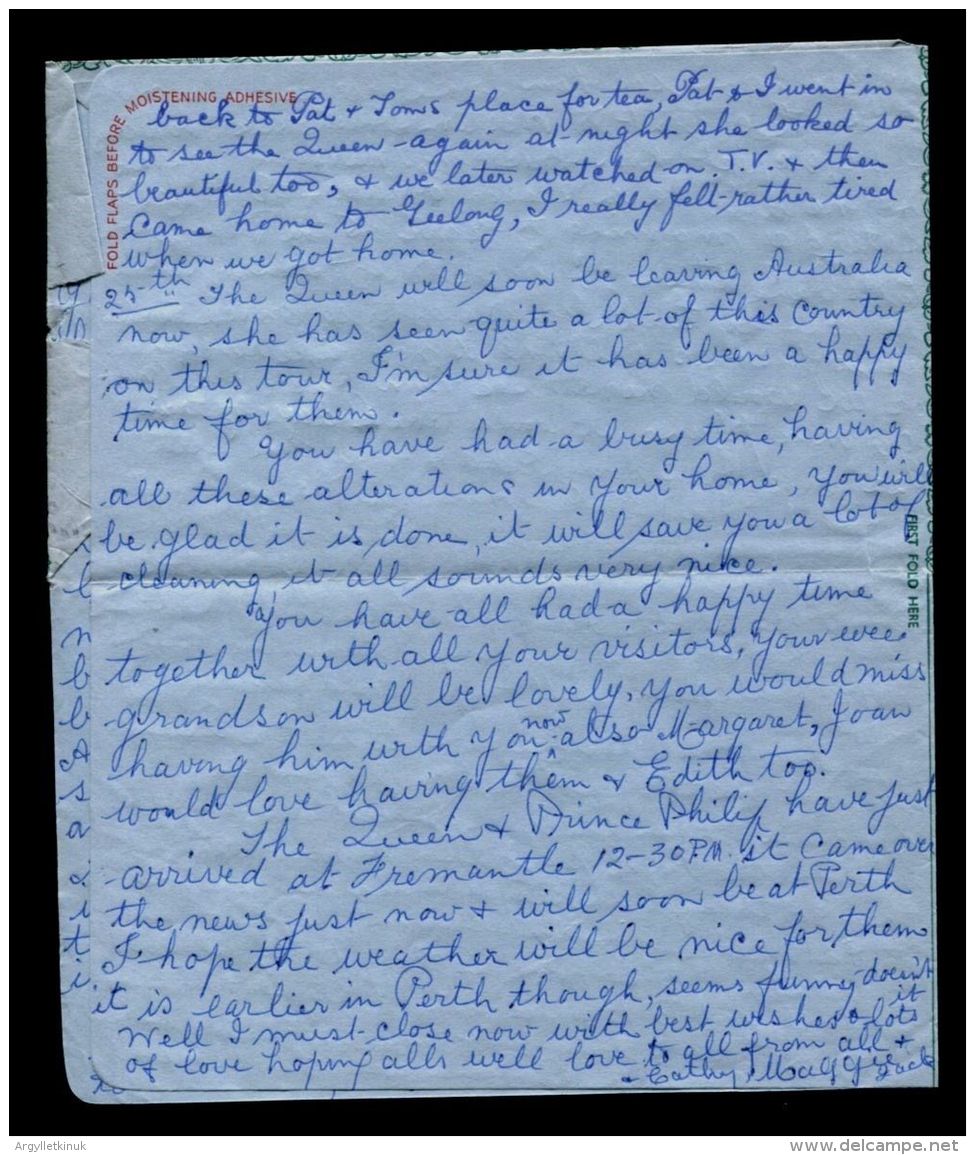 FOLD FLAPS BEFORE MOISTENING ADHESIVE
back to Pat & Toms place for tea, Pat & I went in
to see the Queen again at night she looked so
beautiful too, & we later watched on T.V. & then
came home to Geelong, I really felt rather tired
when we got home.
25th The Queen will soon be leaving Australia
now, she has seen quite a lot of this country
on this tour, I'm sure it has been a happy
time for them.
You have had a busy time, having
all these alterations in your home, you will
be glad it is done, it will save you a lot of
cleaning, it all sounds very nice.
FIRST FOLD HERE
You have all had a happy time
together with all your visitors, your wee
grandson will be lovely, you would miss
having him with you now also Margaret, Joan
would love having them & Edith too.
The Queen & Prince Philip have just
arrived at Fremantle 12-30 P.M. it came over
the news just now & will soon be at Perth
I hope the weather will be nice for them
it is earlier in Perth though, seems funny doesn't it
Well I must close now with best wishes & lots
of love hoping alls well love to all from all &
Cathy,
Argylletkinuk
www.delcampe.net